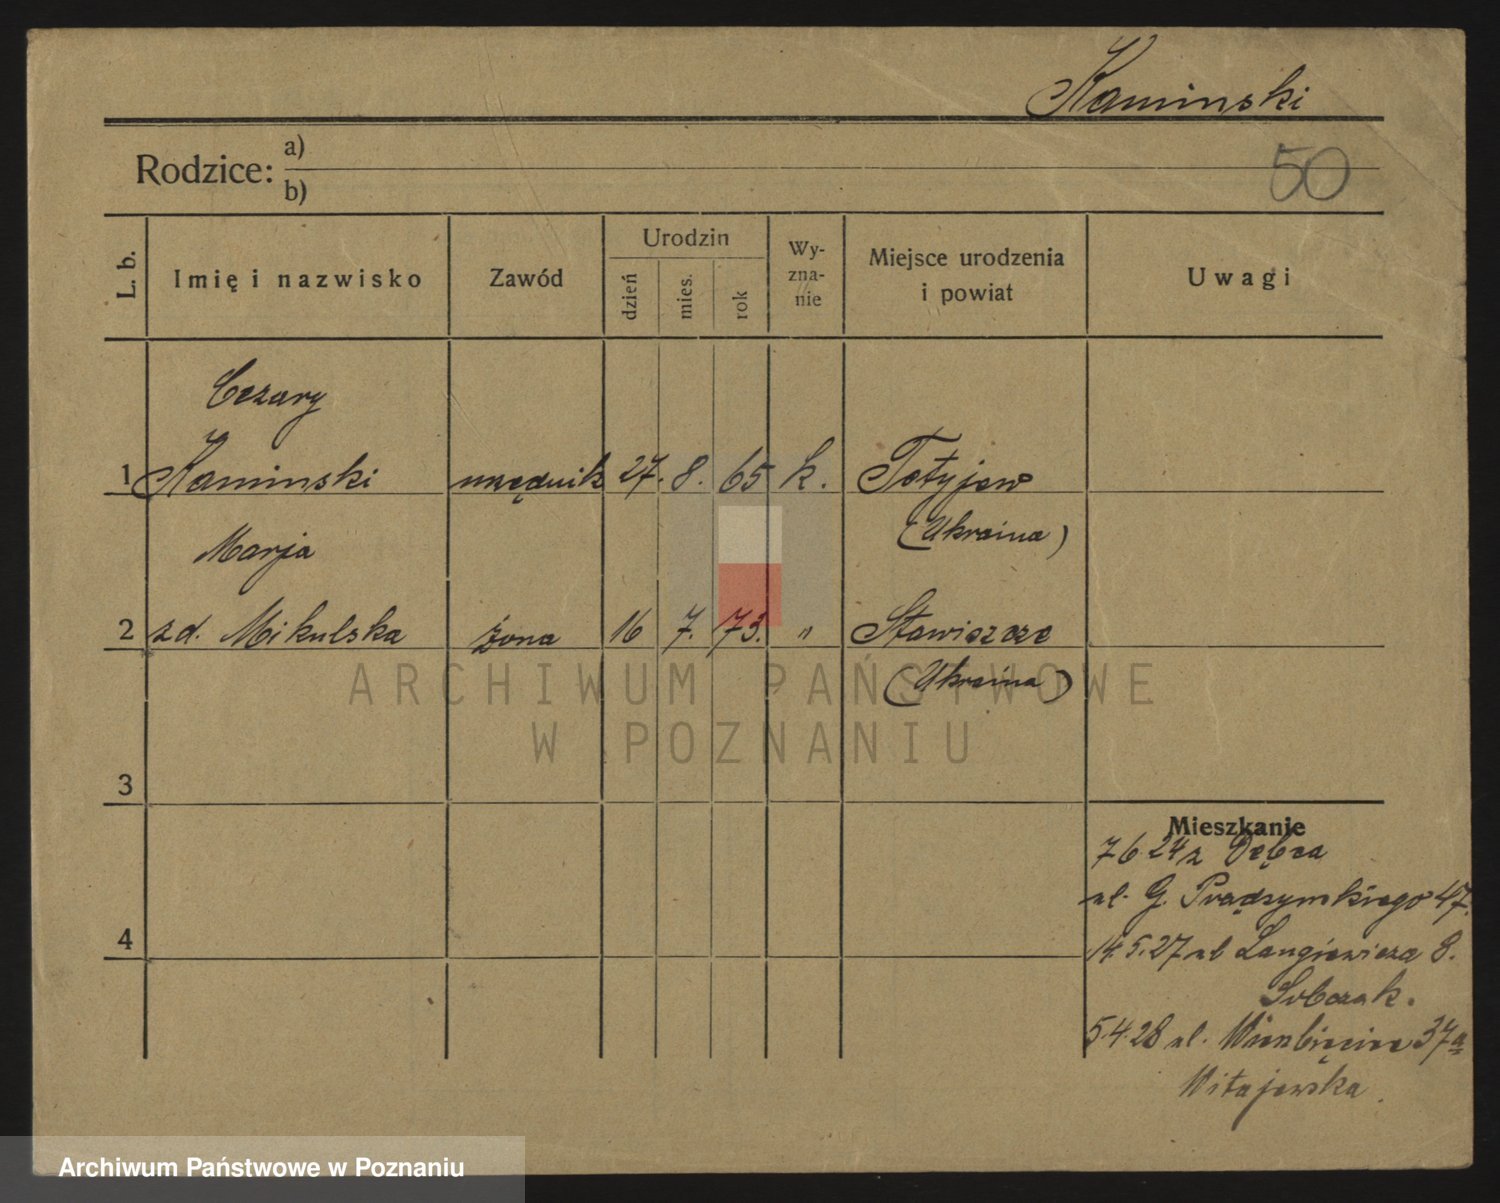 Kaminski
50
Rodzice: a)
b)
L. b.
Imię i nazwisko
Zawód
Urodzin
dzień
mies.
rok
Wy-
zna-
nie
Miejsce urodzenia
i powiat
Uwagi
Cezary
1 Kaminski urzędnik 27. 8. 65 k. Tetyjew
(Ukraina)
Marja
2 zd. Mikulska żona 16 7. 73. " Stawiszcze
(Ukraina)
ARCHIWUM PAŃSTWOWE
W POZNANIU
3
Mieszkanie
7 6 24 z Dębca
ul. G. Prądzymkiego 47.
4
14.5.27 ul Langiewicza 8.
Sobczak.
5.4.28 ul. Wierzbięcice 37a
Witajewska.
Archiwum Państwowe w Poznaniu